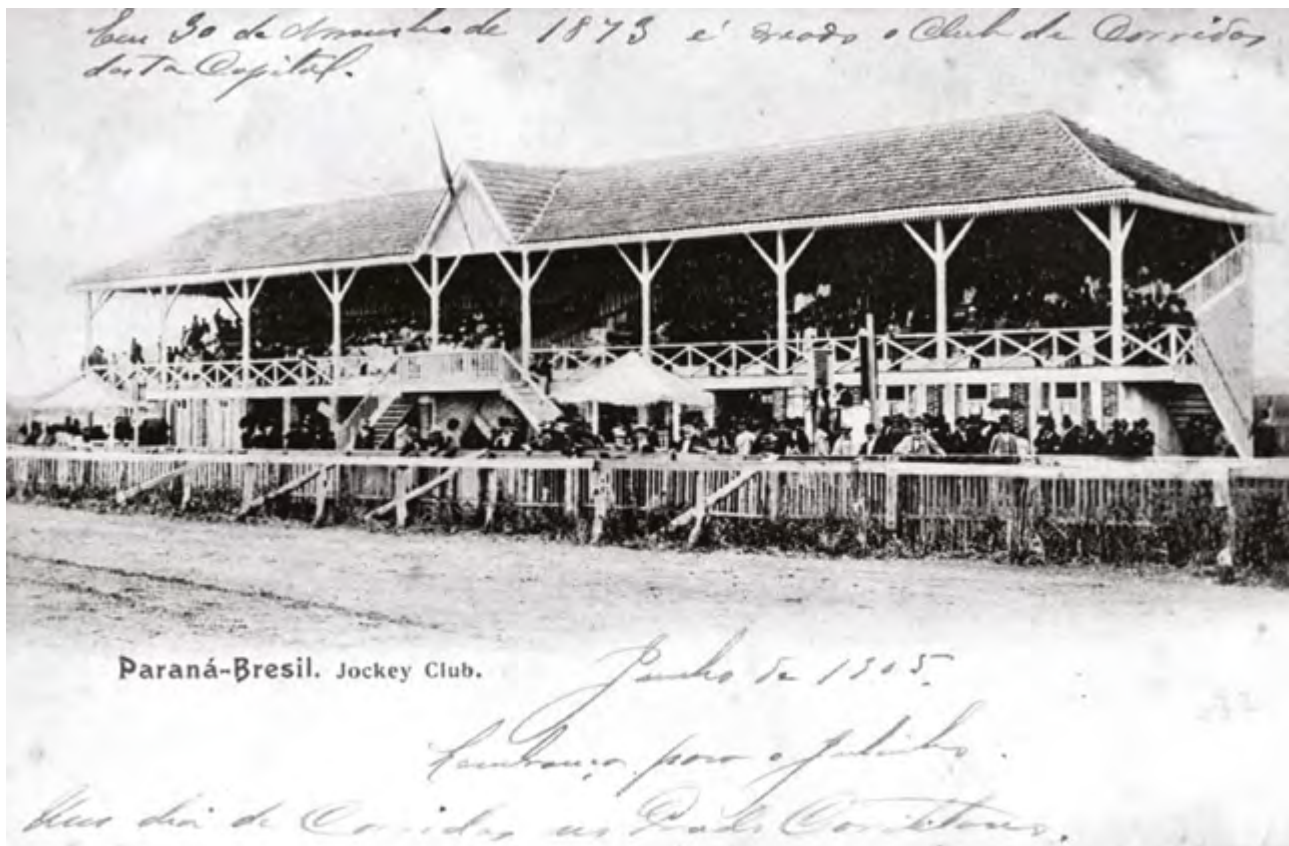 Em 30 de Novembro de 1873 é creado o Club de Corridas
desta Capital.
Paraná-Bresil. Jockey Club.
Junho de 1905.
Lembrança para o Julinho.
Um dia de Corridas no Prado Coritibano.